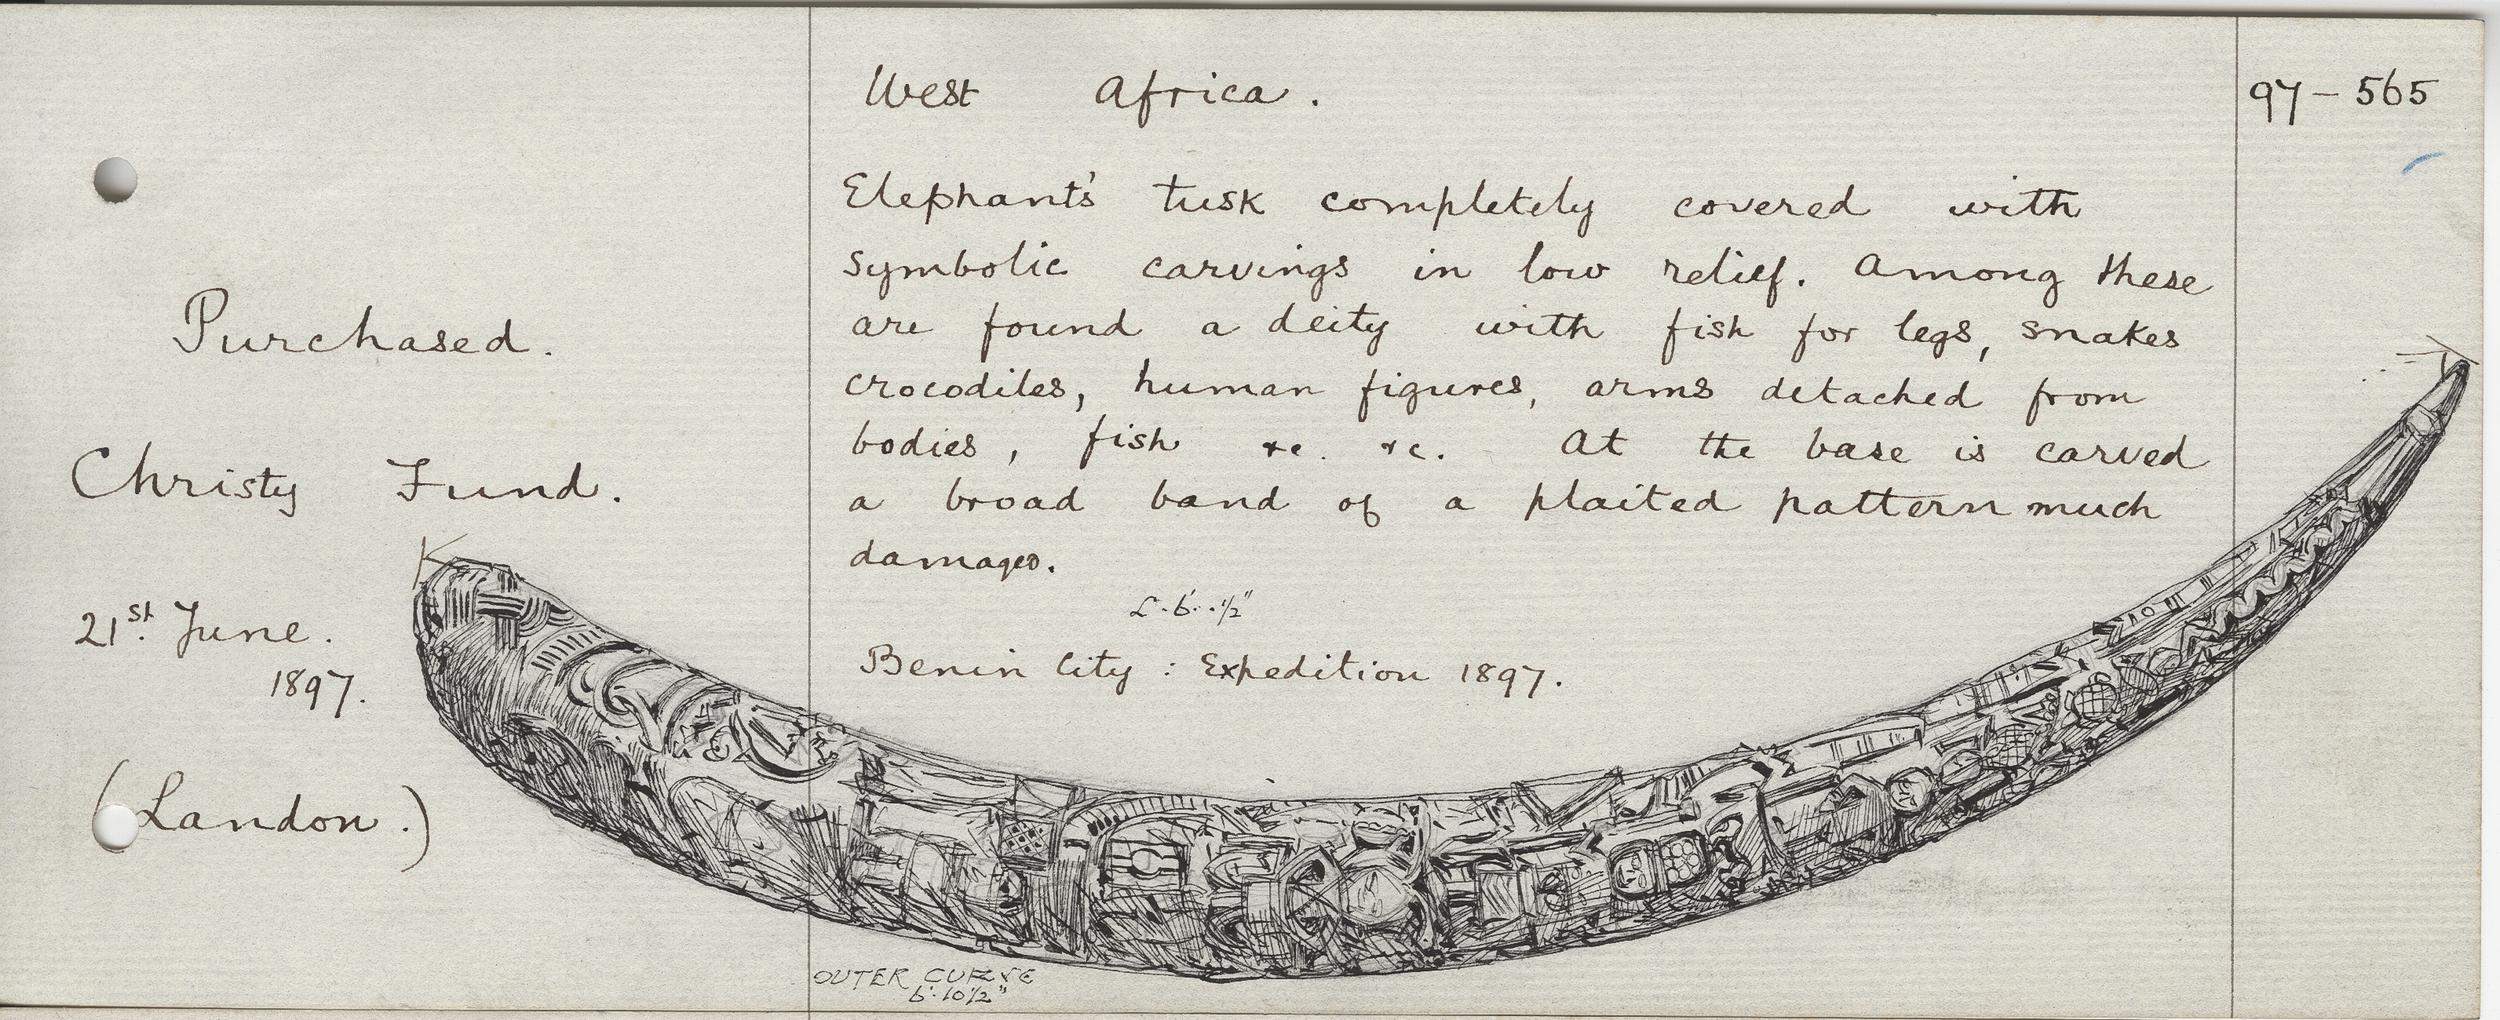 West Africa.
97-565
Elephant's tusk completely covered with
symbolic carvings in low relief. Among these
are found a deity with fish for legs, snakes
crocodiles, human figures, arms detached from
bodies, fish &c. &c. At the base is carved
a broad band of a plaited pattern much
damaged.
L. 6'..½"
Benin City: Expedition 1897.
Purchased.
Christy Fund.
21st. June.
1897.
(Landon.)
OUTER CURVE
6'.10½"